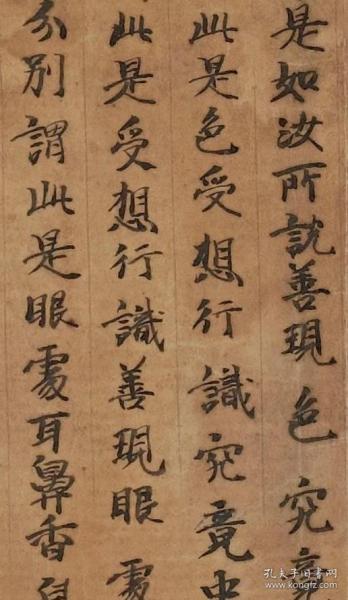 是如汝所說善現色究竟
此是色受想行識究竟中
此是受想行識善現眼處
分別謂此是眼處耳鼻香身
孔夫子旧书网